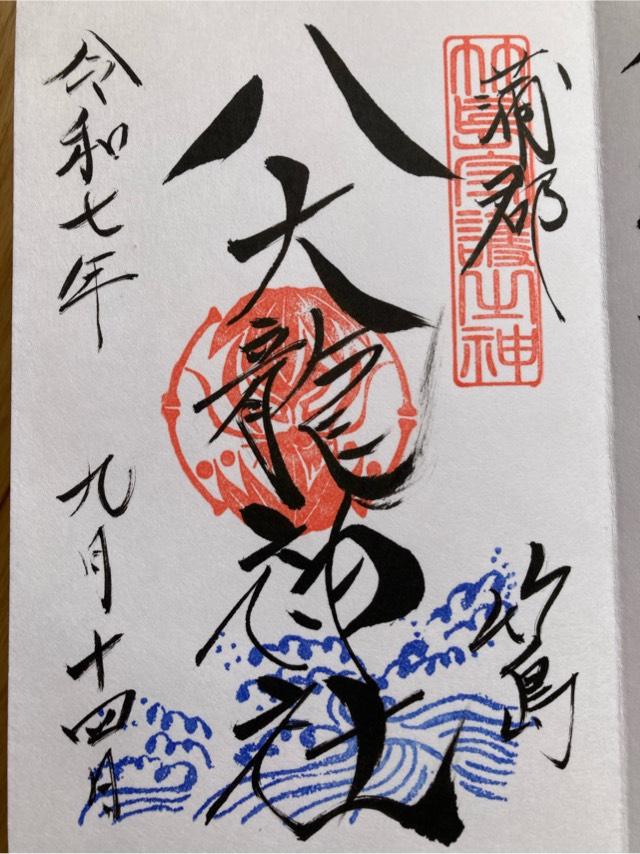 蒲郡
竹島守護之神
竹島
八大龍神社
令和七年
九月十四月